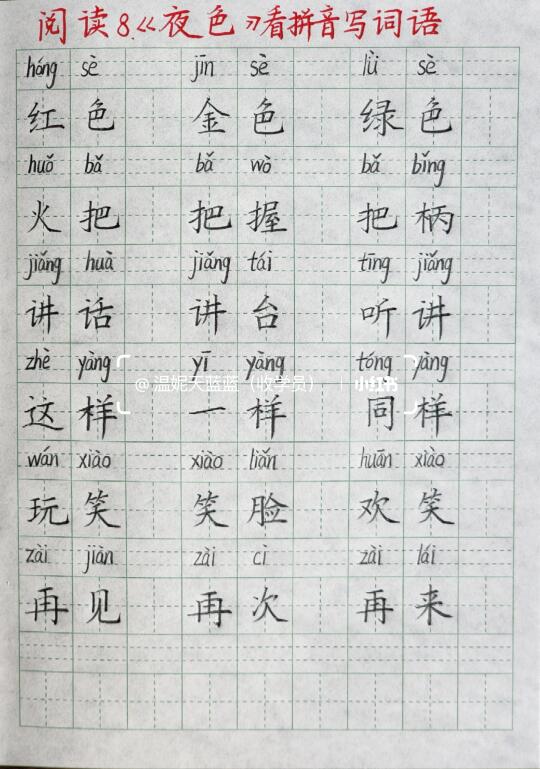 阅读8《夜色》看拼音写词语
hóng sè jīn sè lǜ sè
红色 金色 绿色
huǒ bǎ bǎ wò bǎ bǐng
火把 把握 把柄
jiǎng huà jiǎng tái tīng jiǎng
讲话 讲台 听讲
zhè yàng yī yàng tóng yàng
@温妮天蓝蓝（收学员） 小红书
这样 一样 同样
wán xiào xiào liǎn huān xiào
玩笑 笑脸 欢笑
zài jiàn zài cì zài lái
再见 再次 再来